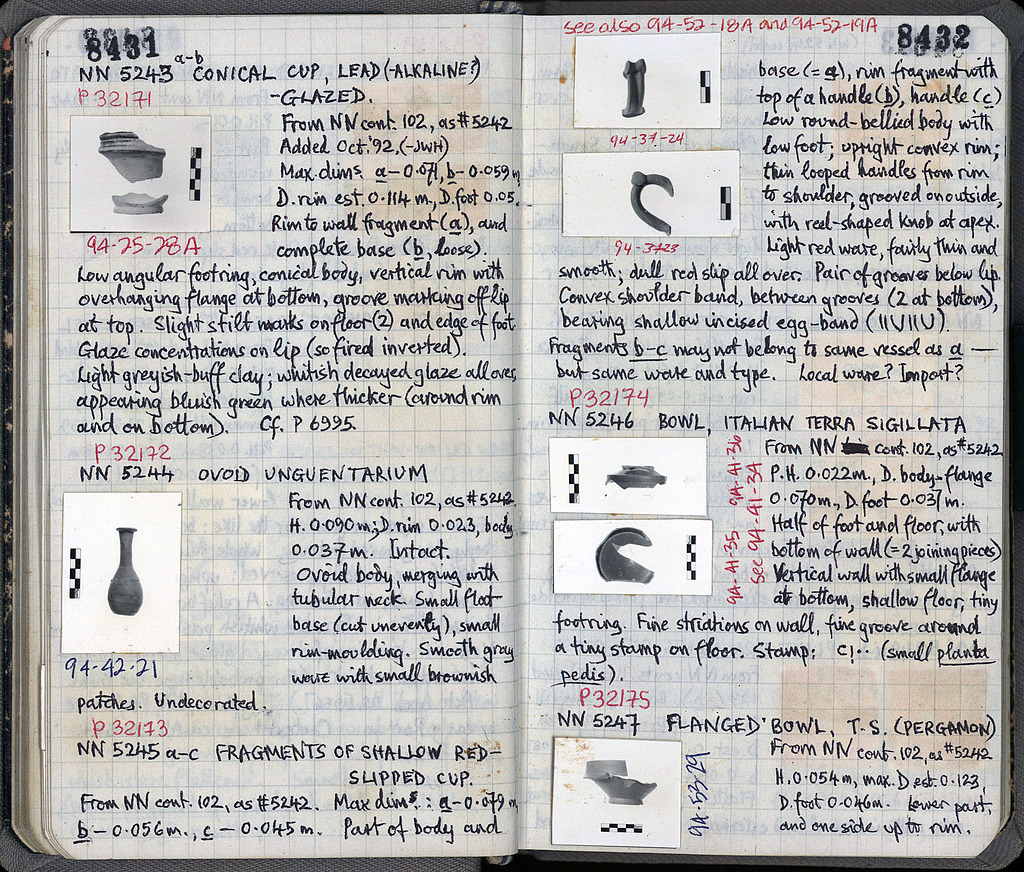 8431
NN 5243 a-b CONICAL CUP, LEAD(-ALKALINE?)
P 32171
-GLAZED.
From NN cont. 102, as #5242
Added Oct.'92, (-JWH)
Max. dims. a-0.071, b-0.059 m
D. rim est. 0.114 m., D. foot 0.05.
Rim to wall fragment (a), and
complete base (b, loose).
94-25-28A
Low angular footring, conical body, vertical rim with
overhanging flange at bottom, groove marking off lip
at top. Slight stilt marks on floor (2) and edge of foot.
Glaze concentrations on lip (so fired inverted).
Light greyish-buff clay; whitish decayed glaze all over,
appearing bluish green where thicker (around rim
and on bottom). Cf. P 6995.
P 32172
NN 5244 OVOID UNGUENTARIUM
From NN cont. 102, as #5242
H. 0.090 m; D. rim 0.023, body
0.037 m. Intact.
Ovoid body, merging with
tubular neck. Small flat
base (cut unevenly), small
rim-moulding. Smooth gray
ware with small brownish
94-42-21
patches. Undecorated.
P 32173
NN 5245 a-c FRAGMENTS OF SHALLOW RED-
SLIPPED CUP.
From NN cont. 102, as #5242. Max dims.: a-0.079 m
b-0.056 m., c-0.045 m. Part of body and
see also 94-52-18A and 94-52-19A
8432
base (= a), rim fragment with
top of a handle (b), handle (c)
Low round-bellied body with
94-37-24
low foot; upright convex rim;
thin looped handles from rim
to shoulder, grooved on outside,
with reel-shaped knob at apex.
94-37-23
Light red ware, fairly thin and
smooth; dull red slip all over. Pair of grooves below lip.
Convex shoulder band, between grooves (2 at bottom),
bearing shallow incised egg-band (IIUIIU).
Fragments b-c may not belong to same vessel as a —
but same ware and type. Local ware? Import?
P 32174
NN 5246 BOWL, ITALIAN TERRA SIGILLATA
From NN cont. 102, as #5242
P.H. 0.022 m., D. body-flange
0.070 m, D. foot 0.037 m.
Half of foot and floor, with
bottom of wall (= 2 joining pieces)
Vertical wall with small flange
at bottom, shallow floor, tiny
94-41-35 94-41-36
See 94-41-34
footring. Fine striations on wall, fine groove around
a tiny stamp on floor. Stamp: C!·· (small planta
pedis).
P 32175
NN 5247 FLANGED BOWL, T.S. (PERGAMON)
From NN cont. 102, as #5242
H. 0.054 m, max. D. est. 0.123,
D. foot 0.046 m. Lower part,
and one side up to rim.
94-53-29